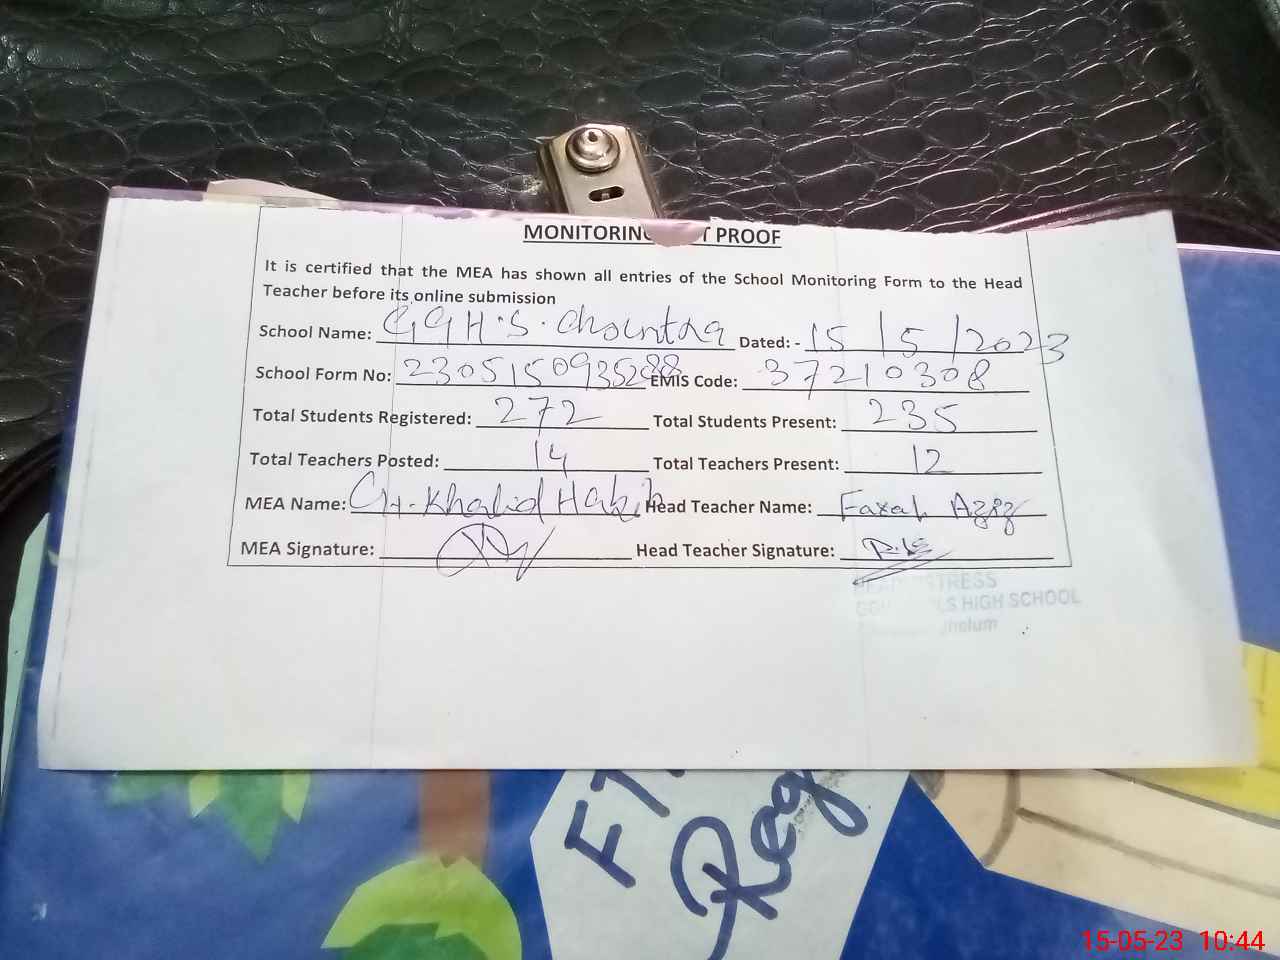 MONITORING PROOF
It is certified that the MEA has shown all entries of the School Monitoring Form to the Head
Teacher before its online submission
School Name: GGH.S. Chountra Dated: - 15/5/2023
School Form No: EMIS Code: 37210308
Total Students Registered: 272 Total Students Present: 235
Total Teachers Posted: 14 Total Teachers Present: 12
MEA Name: CH. Khalid Habib Head Teacher Name: Farah Aziz
MEA Signature: Head Teacher Signature:
LS HIGH SCHOOL
Jhelum
Reg
15-05-23 10:44